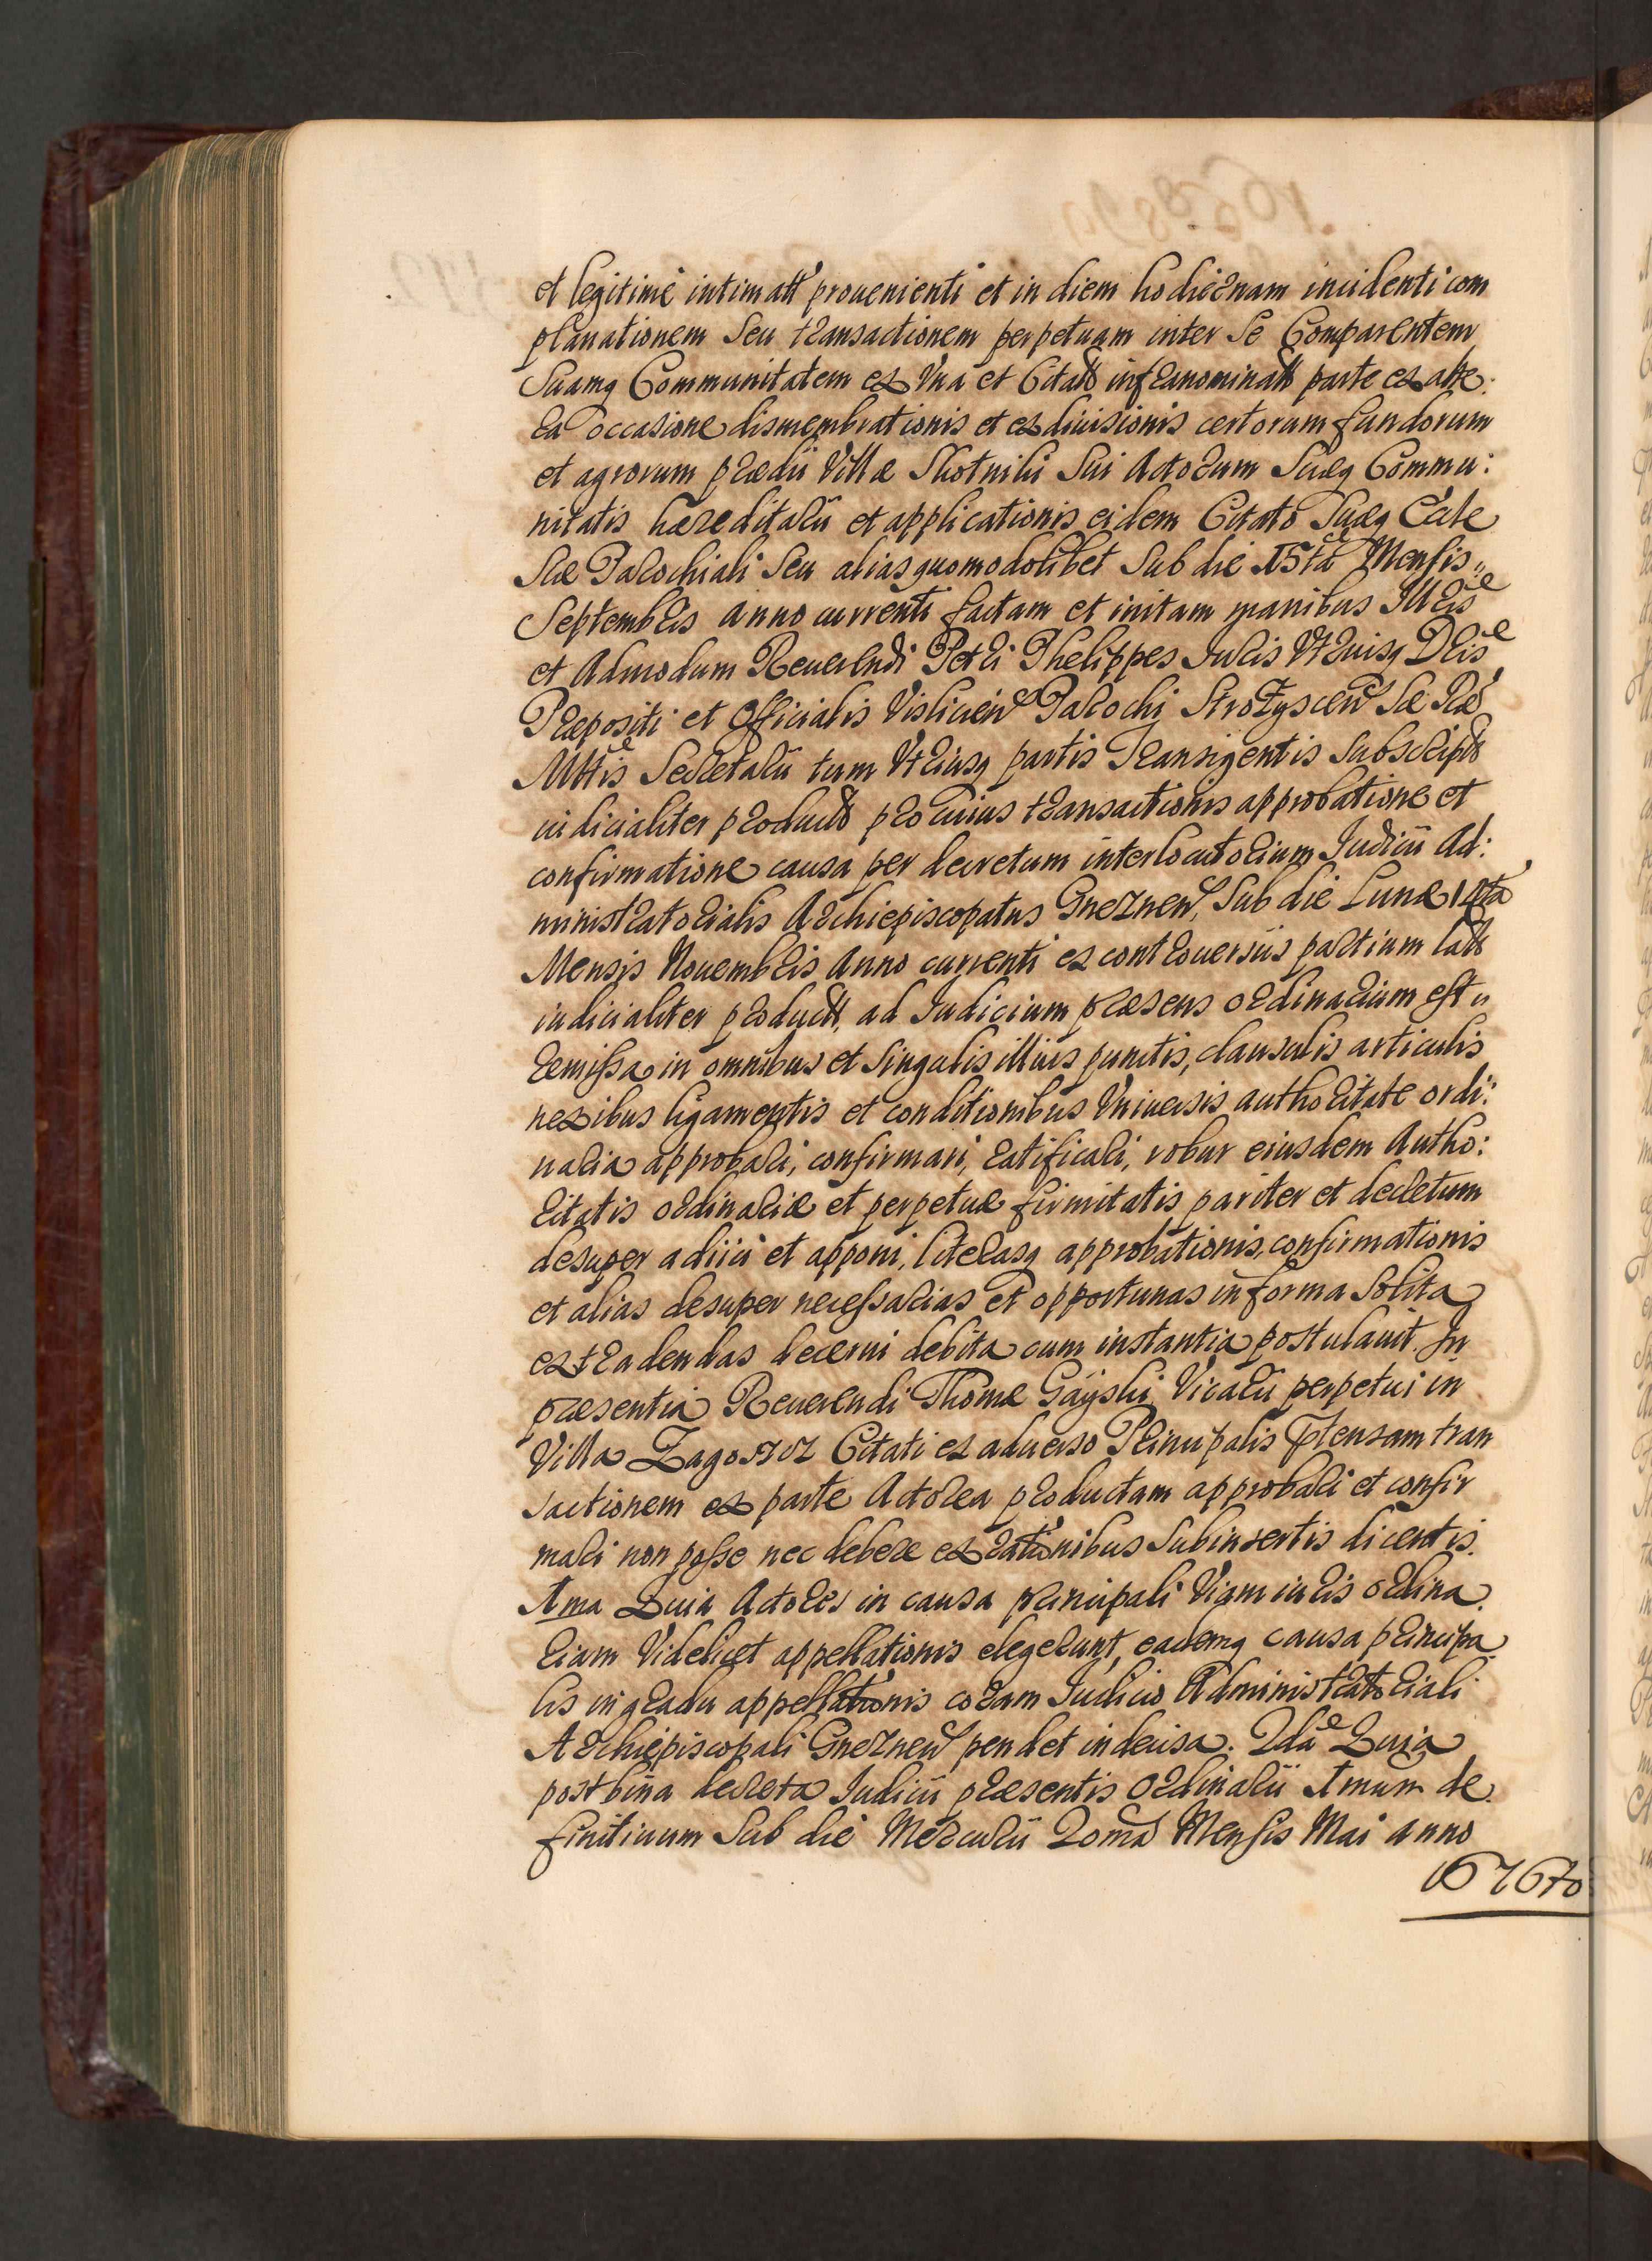 et legitime intimatt prouenienti et in diem hodiernam incidenti com
planationem seu transactionem perpetuam inter se Comparentem
Suamq Communitatem ex Vna et Citatt infranominatt parte ex alte:
ra occasione dismembrationis et exdiuisionis certorum fundorum
et agrorum prædii Villæ Skotniki sui Actorum Suæq Commu:
nitatis hæreditarii et applicationis eidem Citato Suæq Ecclæ
Suæ Parochiali seu alias quomodolibet sub die 15ta Mensis
Septembris anno currenti factam et initam manibus Illris
et Admodum Reuerendi Petri Phelippes Iuris Vtriusq Dris
Præpositi et Officialis Vislicien Parochi Strozyscen Sæ Ræ
Mttis Secretarii tum Vtriusq partis Transigentis subscriptt
iudicialiter productt pro cuius transactionis approbatione et
confirmatione causa per decretum interlocutorium Iudicii Ad:
ministratorialis Archiepiscopatus Gneznen, sub die Lunæ 14ta
Mensis Nouembris Anno currenti ex controuersiis partium latt
iudicialiter productt, ad Iudicium præsens ordinarium est
remissa in omnibus et singulis illius punctis, clausulis articulis
nexibus ligamentis et conditionibus Vniuersis authoritate ordi:
naria approbari, confirmari, ratificari, robur eiusdem Autho:
ritatis ordinariæ et perpetuæ firmitatis pariter et decretum
desuper adiici et apponi, literasq approbationis, confirmationis
et alias desuper necessarias et opportunas in forma solita
extradendas decerni debita cum instantia postulauit. In
præsentia Reuerendi Thomæ Gayski Vicarii perpetui in
Villa Zagosc Citati ex aduerso Principalis Ptensam tran
sactionem ex parte Actorea productam approbari et confir
mari non posse nec debere ex rationibus subinsertis dicentis.
1ma Quia Actores in causa principali Viam iuris ordina
riam Videlicet appellationis elegerunt, eademq causa principa
lis in gradu appellationis coram Iudicio Administratoriali
Archiepiscopali Gneznen pendet indecisa. 2da Quia
post bina decreta Iudicii præsentis Ordinarii 1mum de
finitiuum sub die Mercurii 20ma Mensis Mai anno